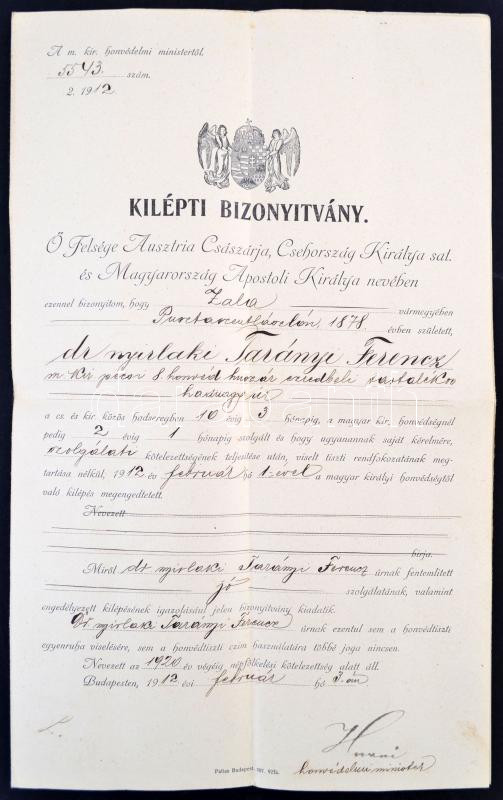 A m. kir. honvédelmi ministertől.
5543. szám.
2. 1912
KILÉPTI BIZONYITVÁNY.
Ő Felsége Ausztria Császárja, Csehország Királya sat.
és Magyarország Apostoli Királya nevében
ezennel bizonyitom, hogy Zala vármegyében
1878. évben született,
dr nyirlaki Tarányi Ferencz
m. kir. pécsi 8. honvéd huszár ezredbeli tartalékos
hadnagy úr
a cs. és kir. közös hadseregben 10 évig 3 hónapig, a magyar kir. honvédségnél
pedig 2 évig 1 hónapig szolgált és hogy ugyanannak saját kérelmére,
szolgálati kötelezettségének teljesitése után, viselt tiszti rendfokozatának meg-
tartása nélkül, 1912 év február hó 1-ével a magyar királyi honvédségtől
való kilépés megengedtetett.
Nevezett
birja.
Miről dr nyirlaki Tarányi Ferencz úrnak fentemlitett
jó szolgálatának, valamint
engedélyezett kilépésének igazolásául jelen bizonyitvány kiadatik.
Dr nyirlaki Tarányi Ferencz úrnak ezentul sem a honvédtiszti
egyenruha viselésére, sem a honvédtiszti czim használatára többé joga nincsen.
Nevezett az 1920 év végéig népfölkelési kötelezettség alatt áll.
Budapesten, 1912 évi február hó 3.-án
honvédelmi minister
Pallas Budapest.